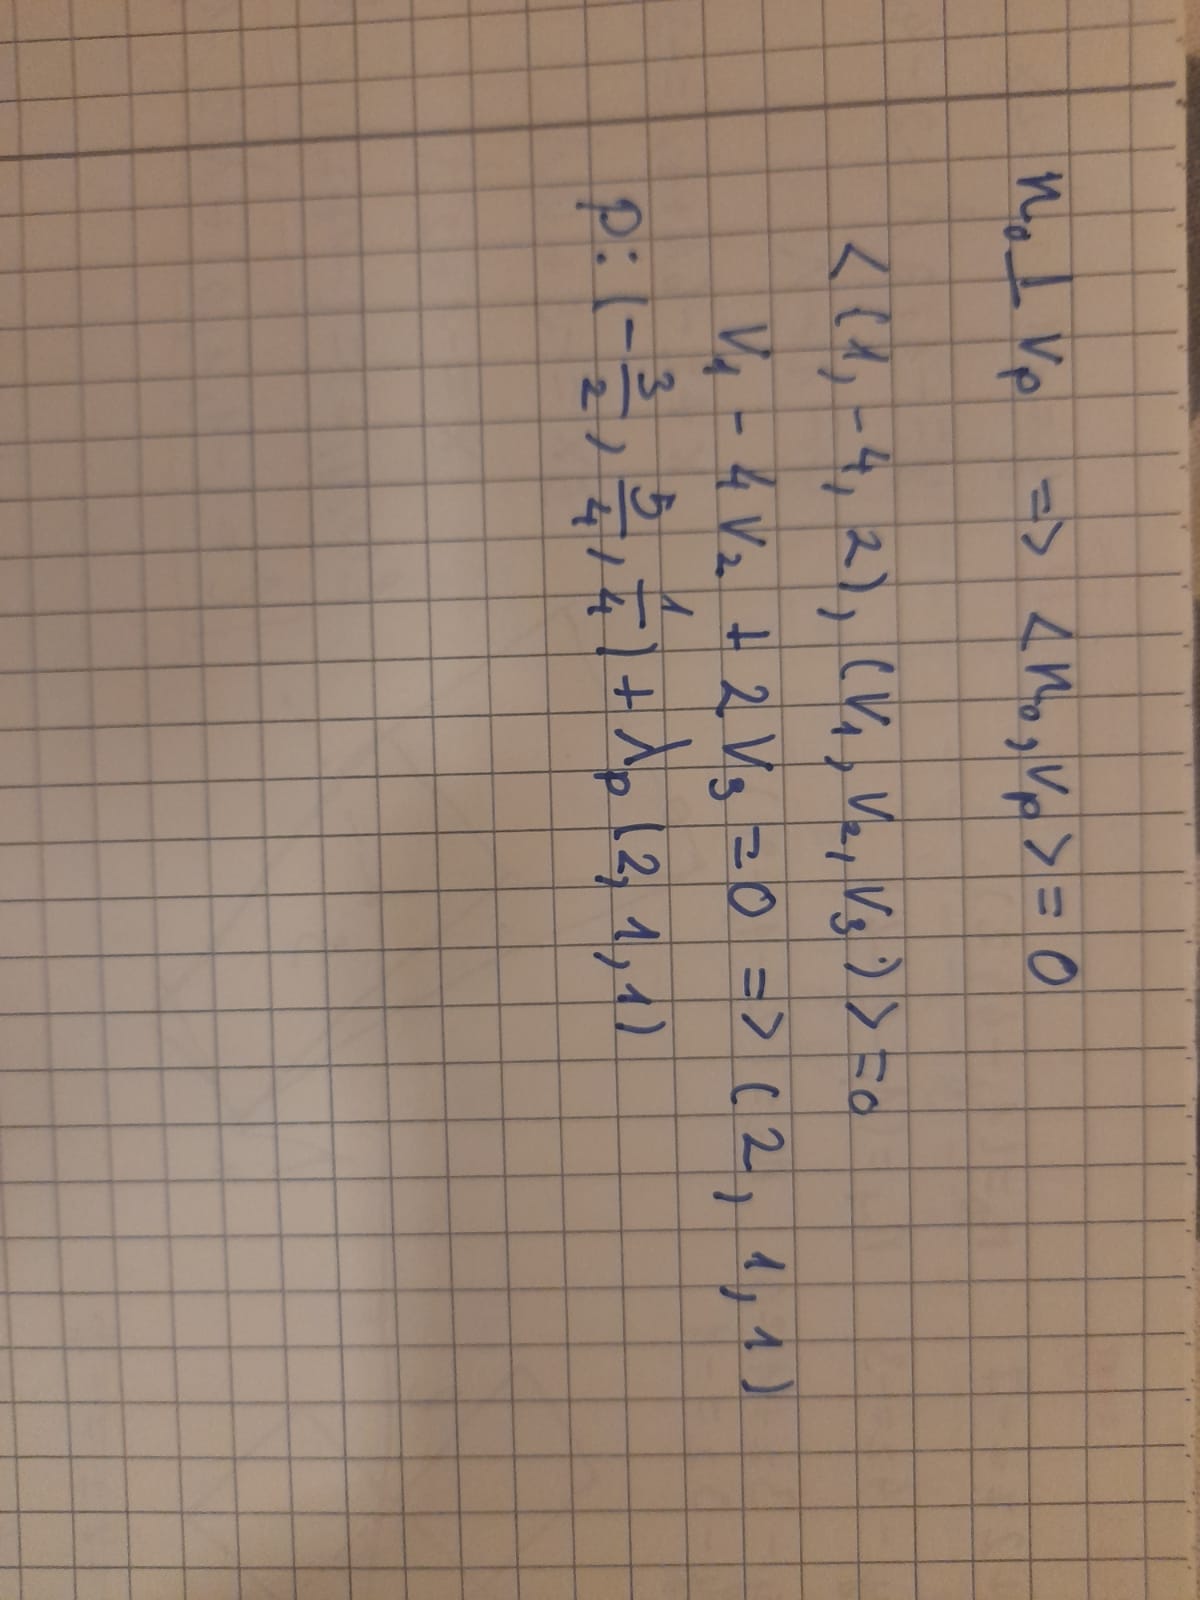 n₀ ⊥ vₚ => <n₀, vₚ> = 0
<(1, -4, 2), (v₁, v₂, v₃)> = 0
v₁ - 4v₂ + 2v₃ = 0 => (2, 1, 1)
p: (-3/2, 5/4, 1/4) + λₚ (2, 1, 1)